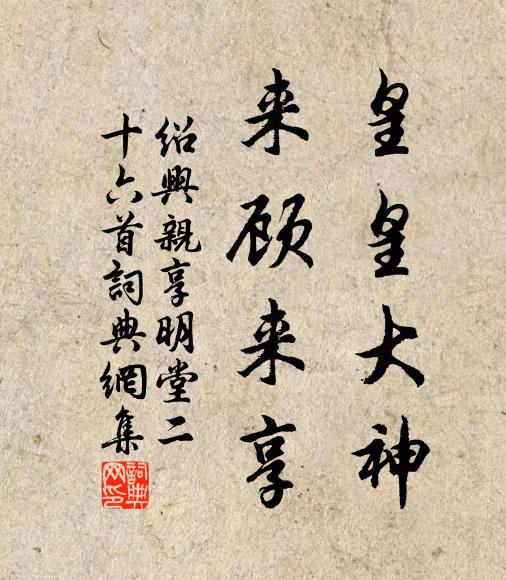 皇皇大神
来顾来享
绍興親享明堂二
十六首詞典網集
詞典
网印